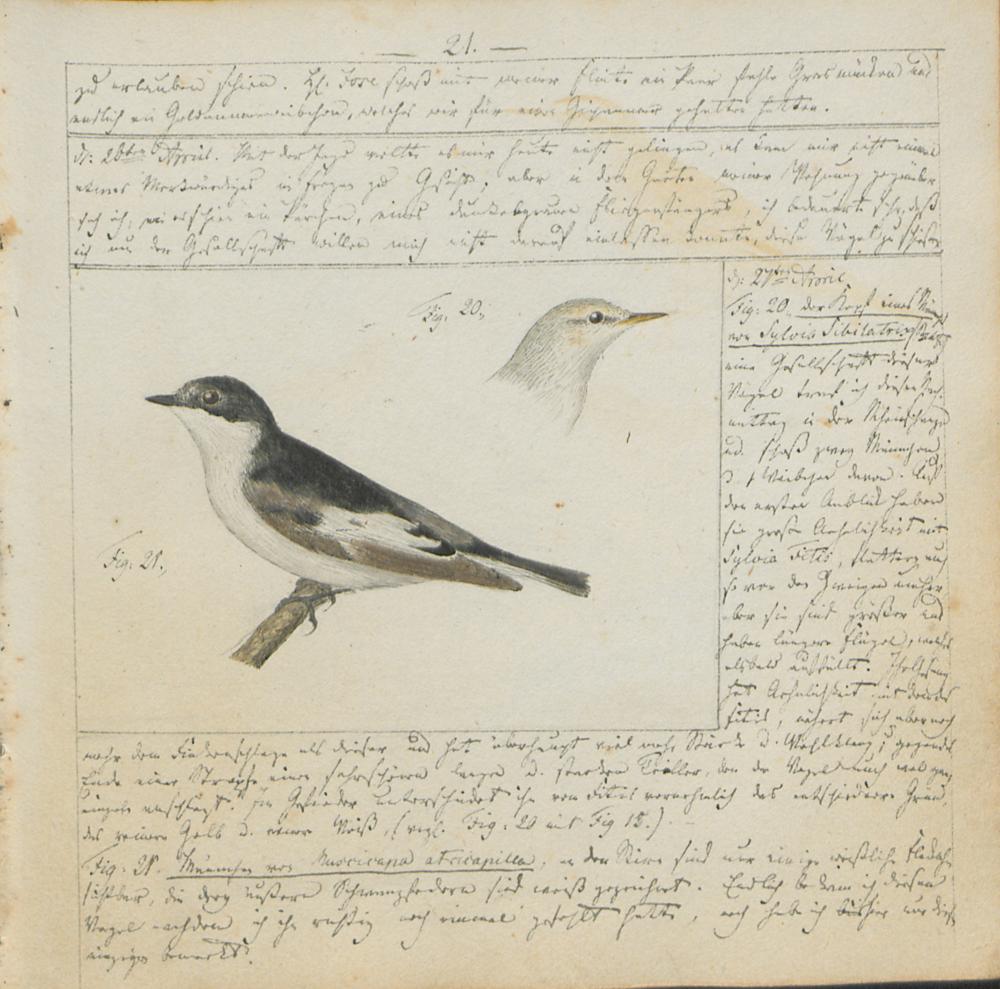 — 21. —
zu erlauben schien. Hl. schoß mit meiner Flinte ein Paar fahle Grasmücken und
endlich ein Goldammerweibchen, welches wir für eine gehalten hatten.
d: 26ten April. Mit der Jagd wollte es mir heute nicht gelingen, es kam mir nicht einmal
etwas Merkwürdiges zu Gesicht; aber in dem Garten meiner Wohnung gegenüber
sah ich, ein Pärchen, eines Fliegenfängers, ich bedauerte sehr, daß
ich nur der Gesellschaft willen mich nicht darauf einlassen konnte, diese Vögel zu schießen
Fig: 20.
Fig: 21.
d: 27ten April.
Fig: 20. der Kopf eines
von Sylvia Sibilatrix
eine Gesellschaft dieser
Vögel traf ich diesen Nach-
mittag in der
und schoß zwey Männchen
u. 1 Weibchen davon. Auf
den ersten Anblick haben
sie große Aehnlichkeit mit
Sylvia Fitis, flattern auch
so vor den Zweigen umher
aber sie sind größer und
haben längere Flügel, welches
alsbald auffällt. Ihr Gesang
hat Aehnlichkeit mit dem des
Fitis, nähert sich aber noch
mehr dem Finkenschlage als dieser und hat überhaupt viel mehr Stärke u. Wohlklang; gegen das
Ende einer Strophe einen sehr schönen langen u. starken Triller, den der Vogel auch wol ganz
einzeln anschlägt. Im Gefieder unterscheidet ihn von Fitis vornehmlich das entschiednere Grün,
das reinere Gelb u. reine Weiß, (vergl. Fig: 20 mit Fig 15.)
Fig: 21. Männchen von Muscicapa atricapilla, an der Stirn sind nur einige weißliche
sichtbar, die drey äußern Schwanzfedern sind weiß gezeichnet. Endlich bekam ich diesen
Vogel nachdem ich ihn richtig noch einmal gefehlt hatte, noch habe ich bisher nur dies
einzige bemerkt.